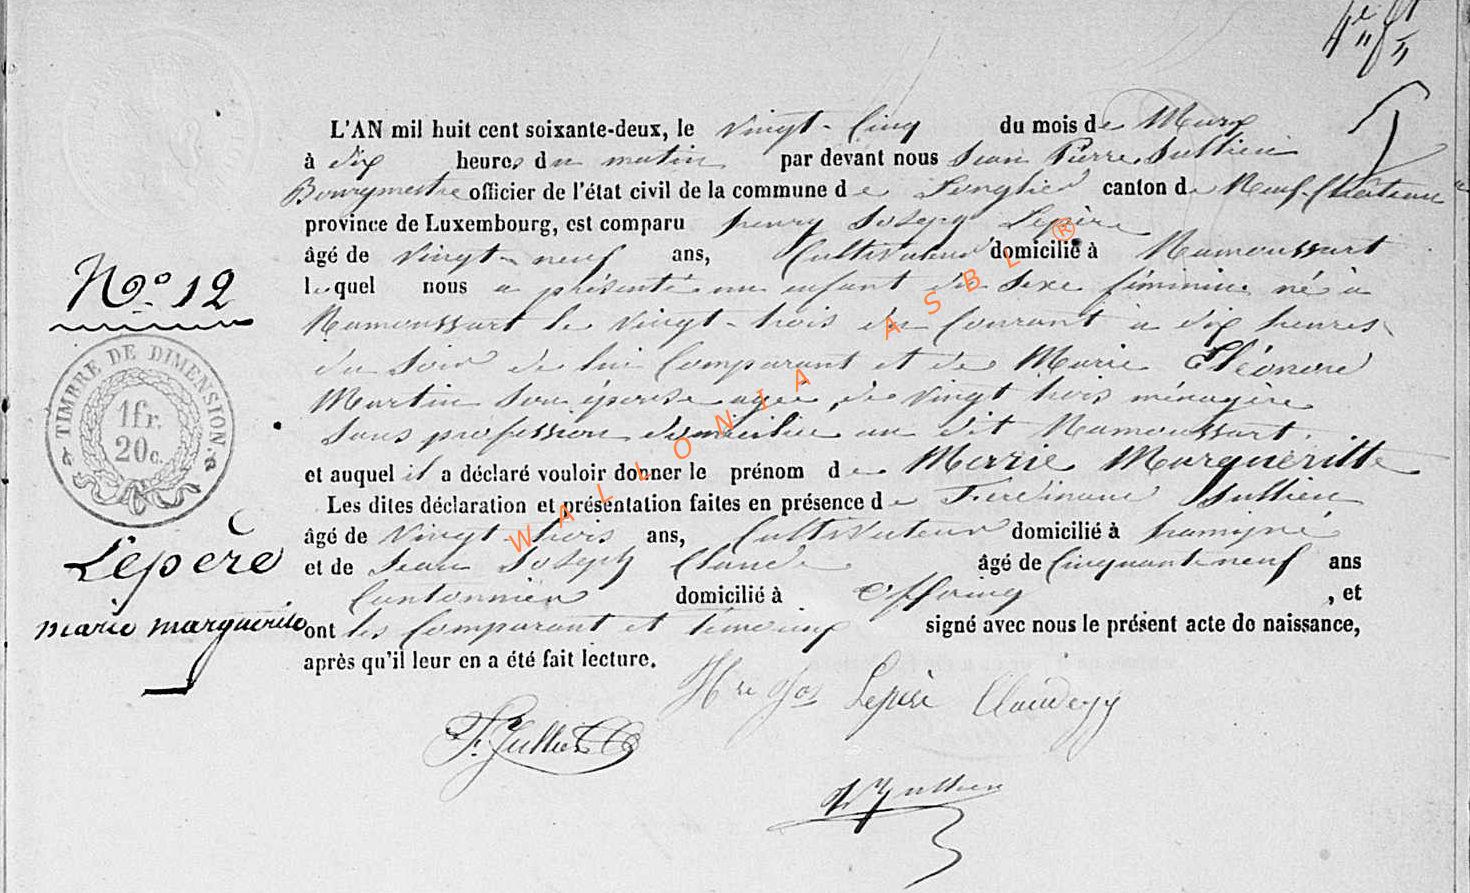 L'AN mil huit cent soixante-deux, le vingt-Cinq du mois de Mars
à dix heures du matin par devant nous Jean Pierre Jullien
Bourgmestre officier de l'état civil de la commune de Longlier canton de Neufchâteau
province de Luxembourg, est comparu henry Joseph Lepère
âgé de vingt-neuf ans, Cultivateur domicilié à Namoussart
lequel nous a présenté un enfant du sexe féminin né à
Namoussart le vingt-trois du Courant à dix heures
du soir de lui Comparant et de Marie Eléonore
Martin son épouse agée de vingt trois ménagère
sans profession domiciliée au dit Namoussart.
et auquel il a déclaré vouloir donner le prénom de Marie Margueritte
Les dites déclaration et présentation faites en présence de Ferdinand Jullien
âgé de vingt-trois ans, Cultivateur domicilié à hamipré
et de Jean Joseph Claude âgé de Cinquante neuf ans
Cantonnier domicilié à Offaing, et
ont les Comparant et témoins signé avec nous le présent acte de naissance,
après qu'il leur en a été fait lecture.
Hre Jos Lepère Claude JJ
F. Jullien
JP Jullien
No. 12
TIMBRE DE DIMENSION
1 fr.
20 c.
Lepère
marie marguerite
WALLONIA ASBL ®